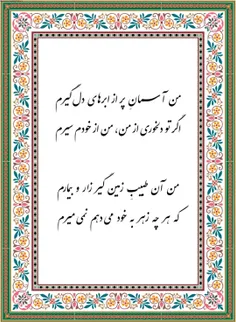 من آسمانِ پر از ابرهای دلگیرم
اگر تو دلخوری از من، من از خودم سیرم
من آن طبیبِ زمین‌گیرِ زار و بیمارم
که هر چه زهر به خود می‌دهم نمی‌میرم